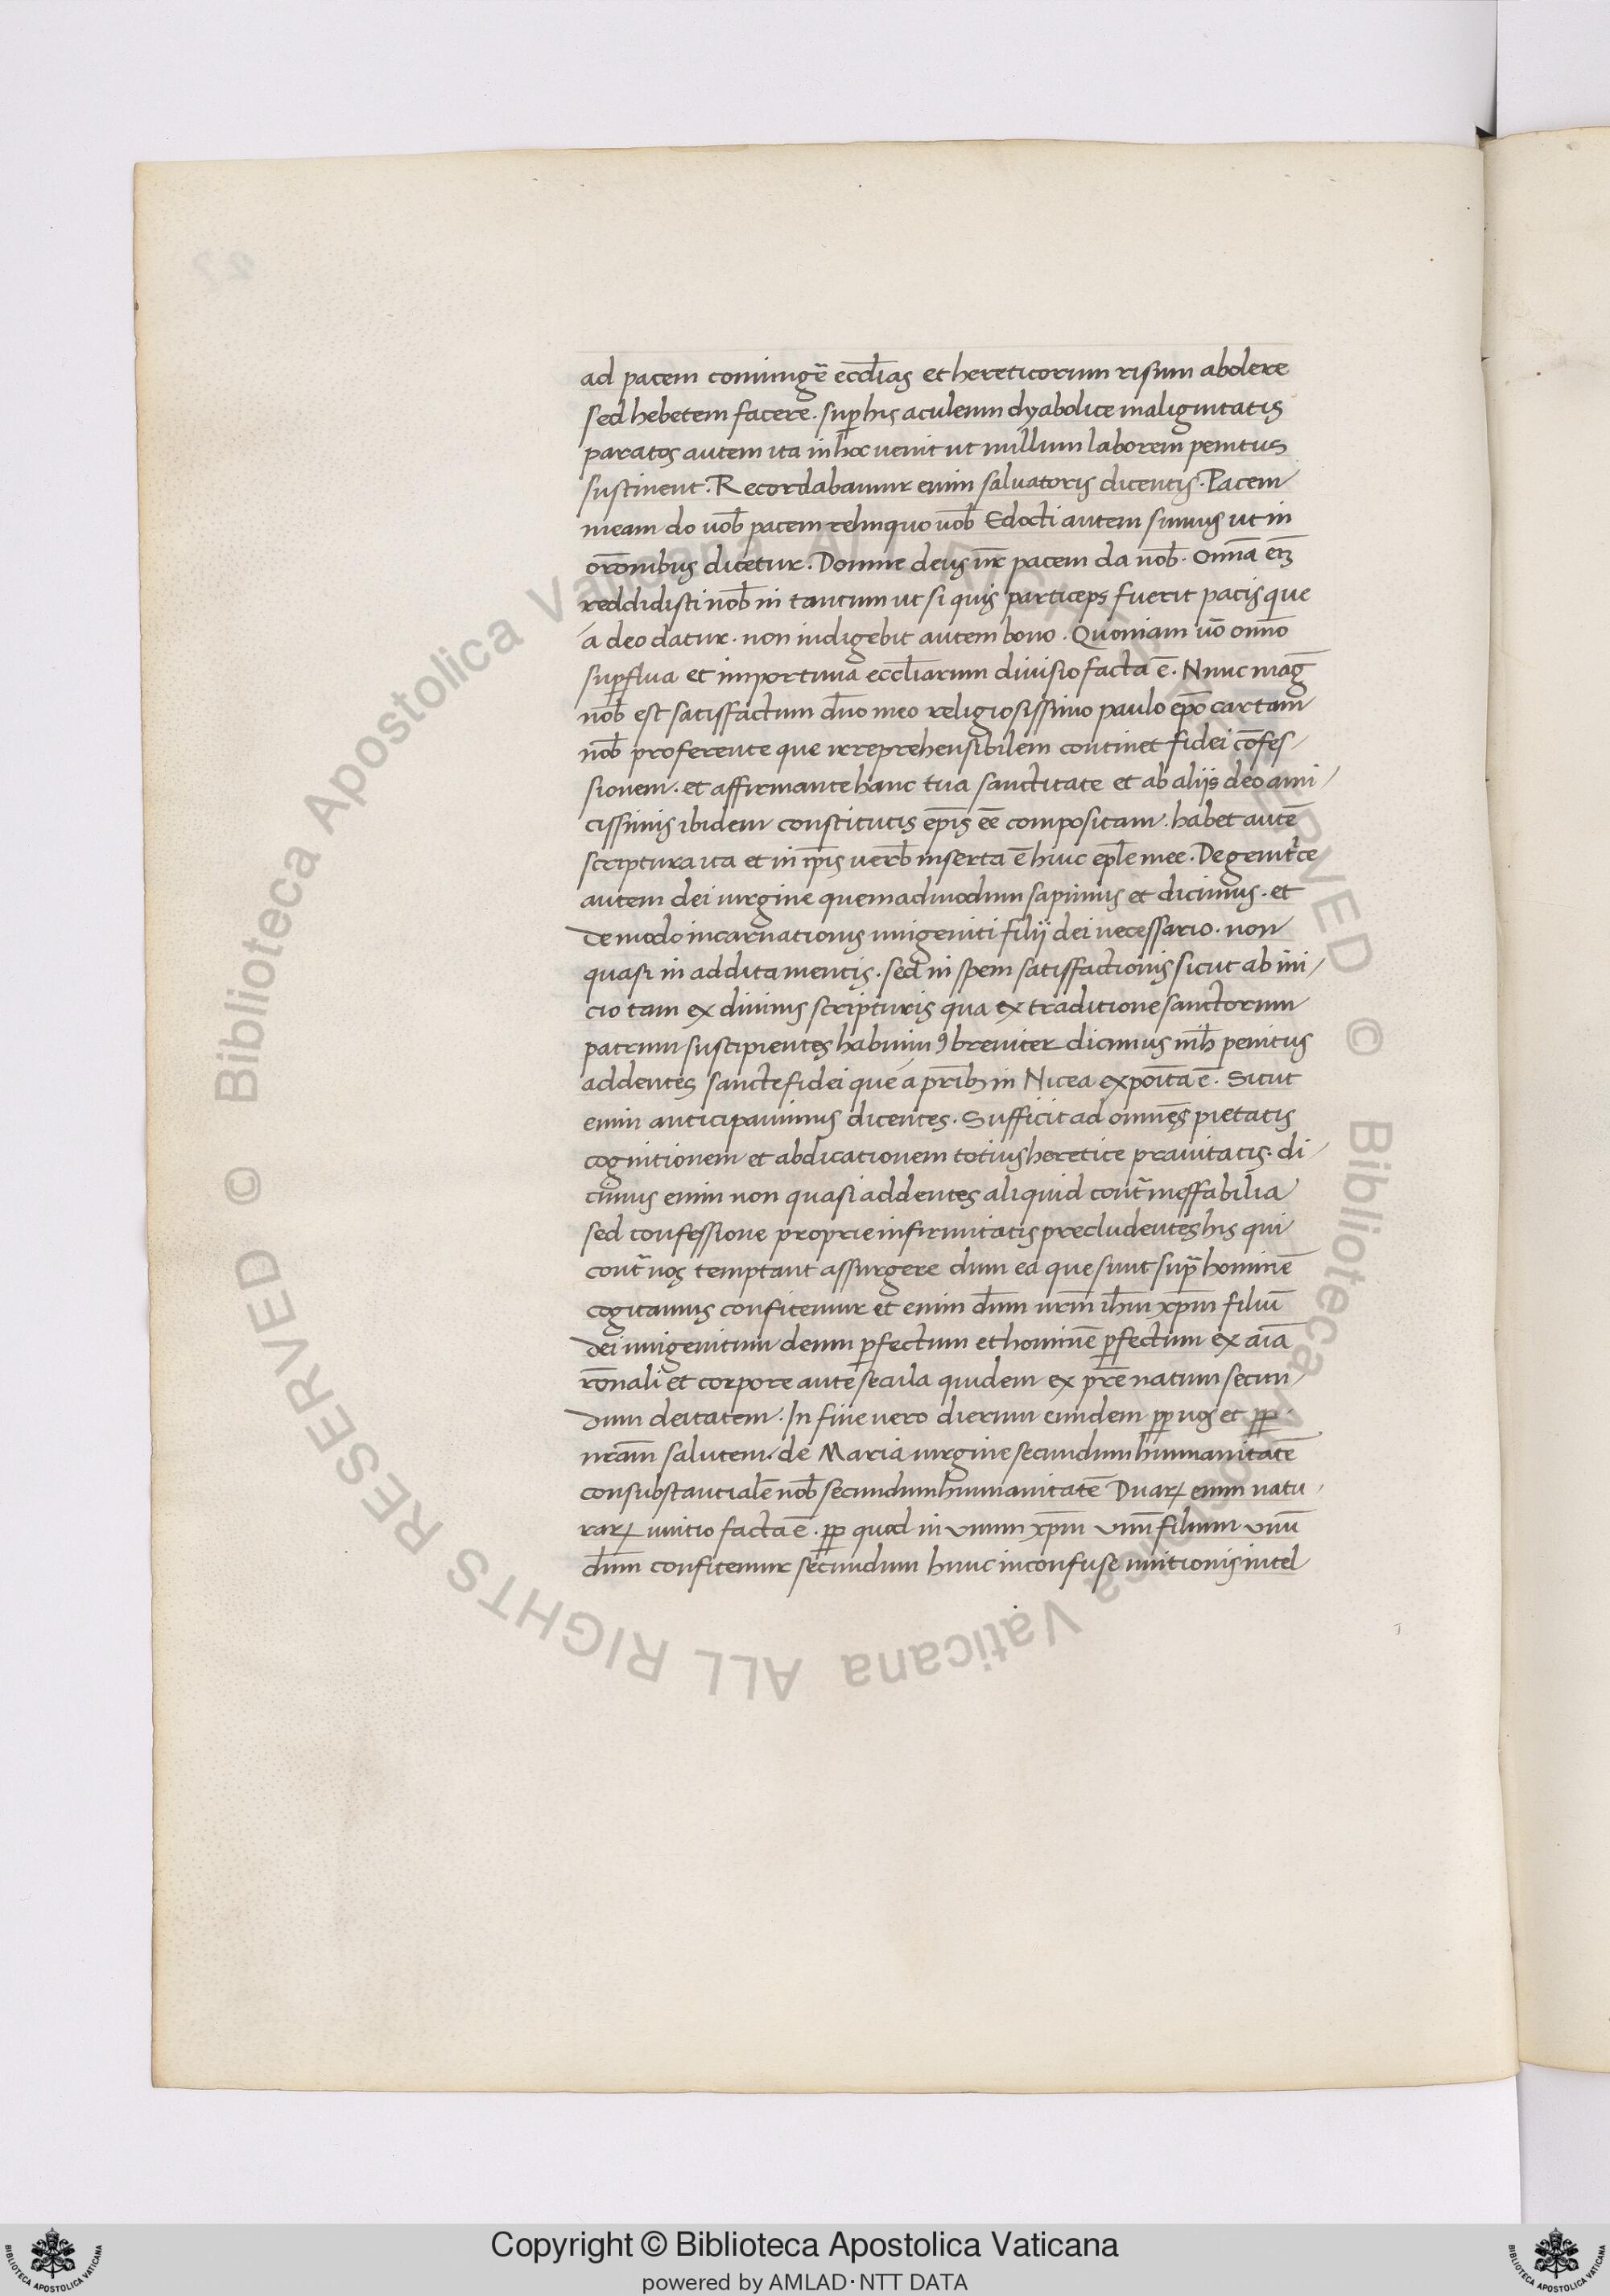 ad pacem coniungē eccl̄ias et hereticorum risum abolere
sed hebetem facere. sup̱ his aculeum dyabolice malignitatis
paratos autem ita in hoc uenit ut nullum laborem penitus
sustinent. Recordabamur enim saluatoris dicentis. Pacem
meam do uob̄ pacem relinquo uob̄ Edocti autem sumus ut in
orōnibus dicetur. Domine deus nr̄ pacem da nob̄. Omnā etꝫ
reddidisti nob̄ in tantum ut si quis particeps fuerit pacis que
a deo datur. non indigebit autem bono. Quoniam uō omnō
sup̱flua et importuna eccl̄iarum diuisio facta ē. Nunc mag̅
nob̄ est satisfactum dn̄o meo religiosissimo paulo ep̄o cartam
nob̄ proferente que irreprehensibilem continet fidei cōfes
sionem. et affirmante hanc tua sanctitate et ab aliis deo ami
cissimis ibidem constitutis ep̄is eē compositam. habet autē
scriptura ita et in ip̄is uerb̄ inserta ē huic ep̄le mee. De genit̄ce
autem dei uirgine quemadmodum sapimus et dicimus. et
de modo incarnationis unigeniti filii dei necessario. non
quasi in additamentis. sed in spem satisfactionis sicut ab ini
cio tam ex diuinis scripturis qua ex traditione sanctorum
patrum suscipientes habuim9 breuiter dicimus nih̄ penitus
addentes sancte fidei que a pr̄ibꝫ in Nicea expoīta ē. Sicut
enim anticipauimus dicentes. Sufficit ad omnēs pietatis
cognitionem et abdicationem totius heretice prauitatis: di
cimus enim non quasi addentes aliquid cont̄ ineffabilia
sed confessione proprie infirmitatis precludentes his qui
cont̄ nos temptant assurgere dum ea que sunt sup̄ hominē
cogitamus confitemur et enim dn̄m nr̄m ih̄m xp̄m filiū
dei unigenitum deum p̱fectum et hominē p̱fectum ex aīa
rōnali et corpore ante secula quidem ex pr̄e natum secun
dum deitatem. In fine uero dierum eundem pp̱ nos et pp̱
nr̄am salutem. de Maria uirgine secundum humanitatē
consubstantialē nob̄ secundum humanitatē Duaꝝ enim natu
raꝝ unitio facta ē. pp̱ quod in unum xp̄m unū filium unū
dn̄m confitemur secundum hunc inconfuse unitionis intel
Copyright © Biblioteca Apostolica Vaticana
powered by AMLAD·NTT DATA
© Biblioteca Apostolica Vaticana ALL RIGHTS RESERVED
© Biblioteca Apostolica Vaticana ALL RIGHTS RESERVED
BIBLIOTECA APOSTOLICA VATICANA
BIBLIOTECA APOSTOLICA VATICANA